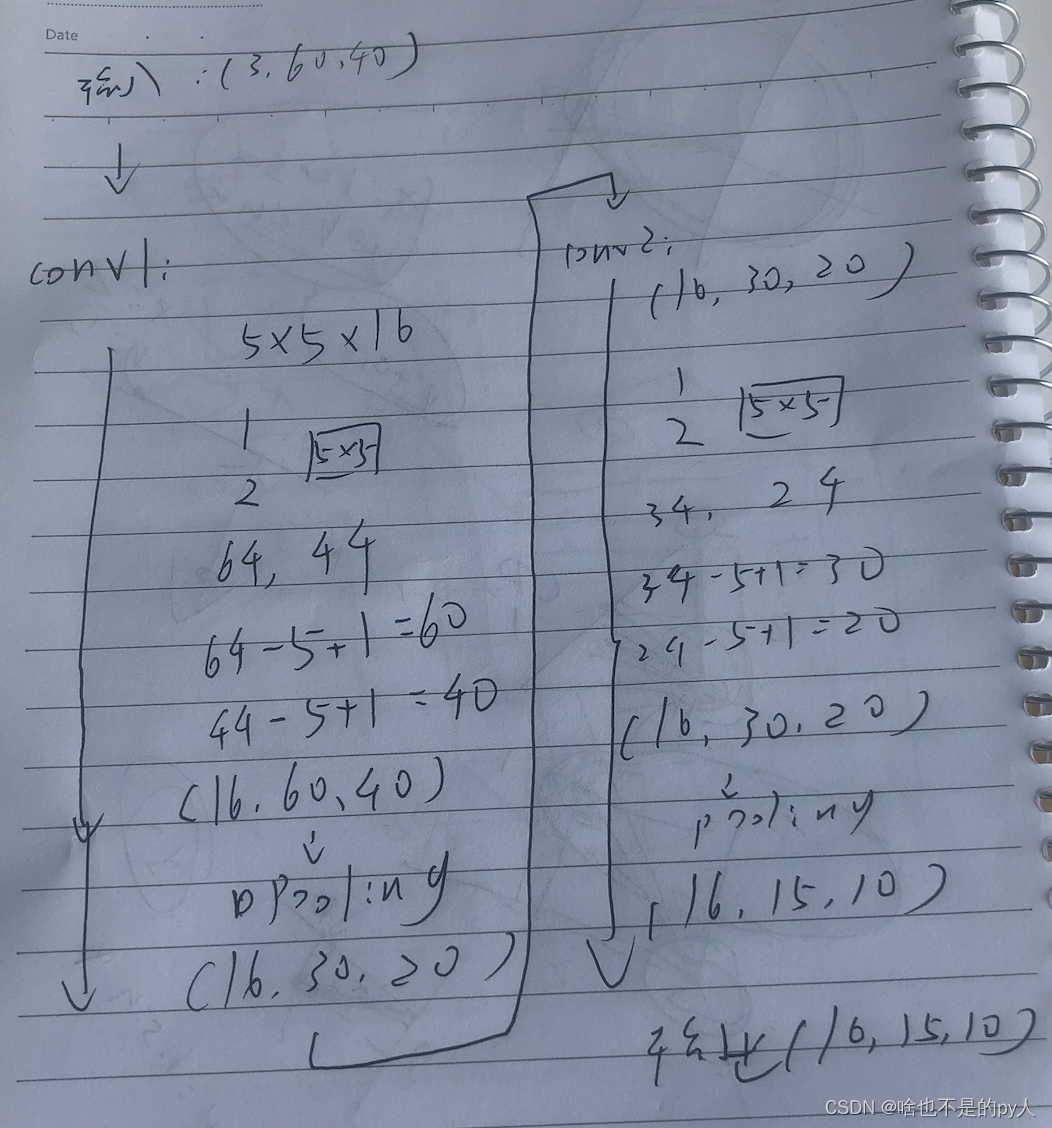 Date
输入:(3,60,40)
conv1:
5×5×16
1
5×5
2
64, 44
64-5+1=60
44-5+1=40
(16,60,40)
pooling
(16,30,20)
conv2:
(16,30,20)
1
2 5×5
34, 24
34-5+1=30
24-5+1=20
(16,30,20)
pooling
(16,15,10)
输出(16,15,10)
CSDN @啥也不是的py人